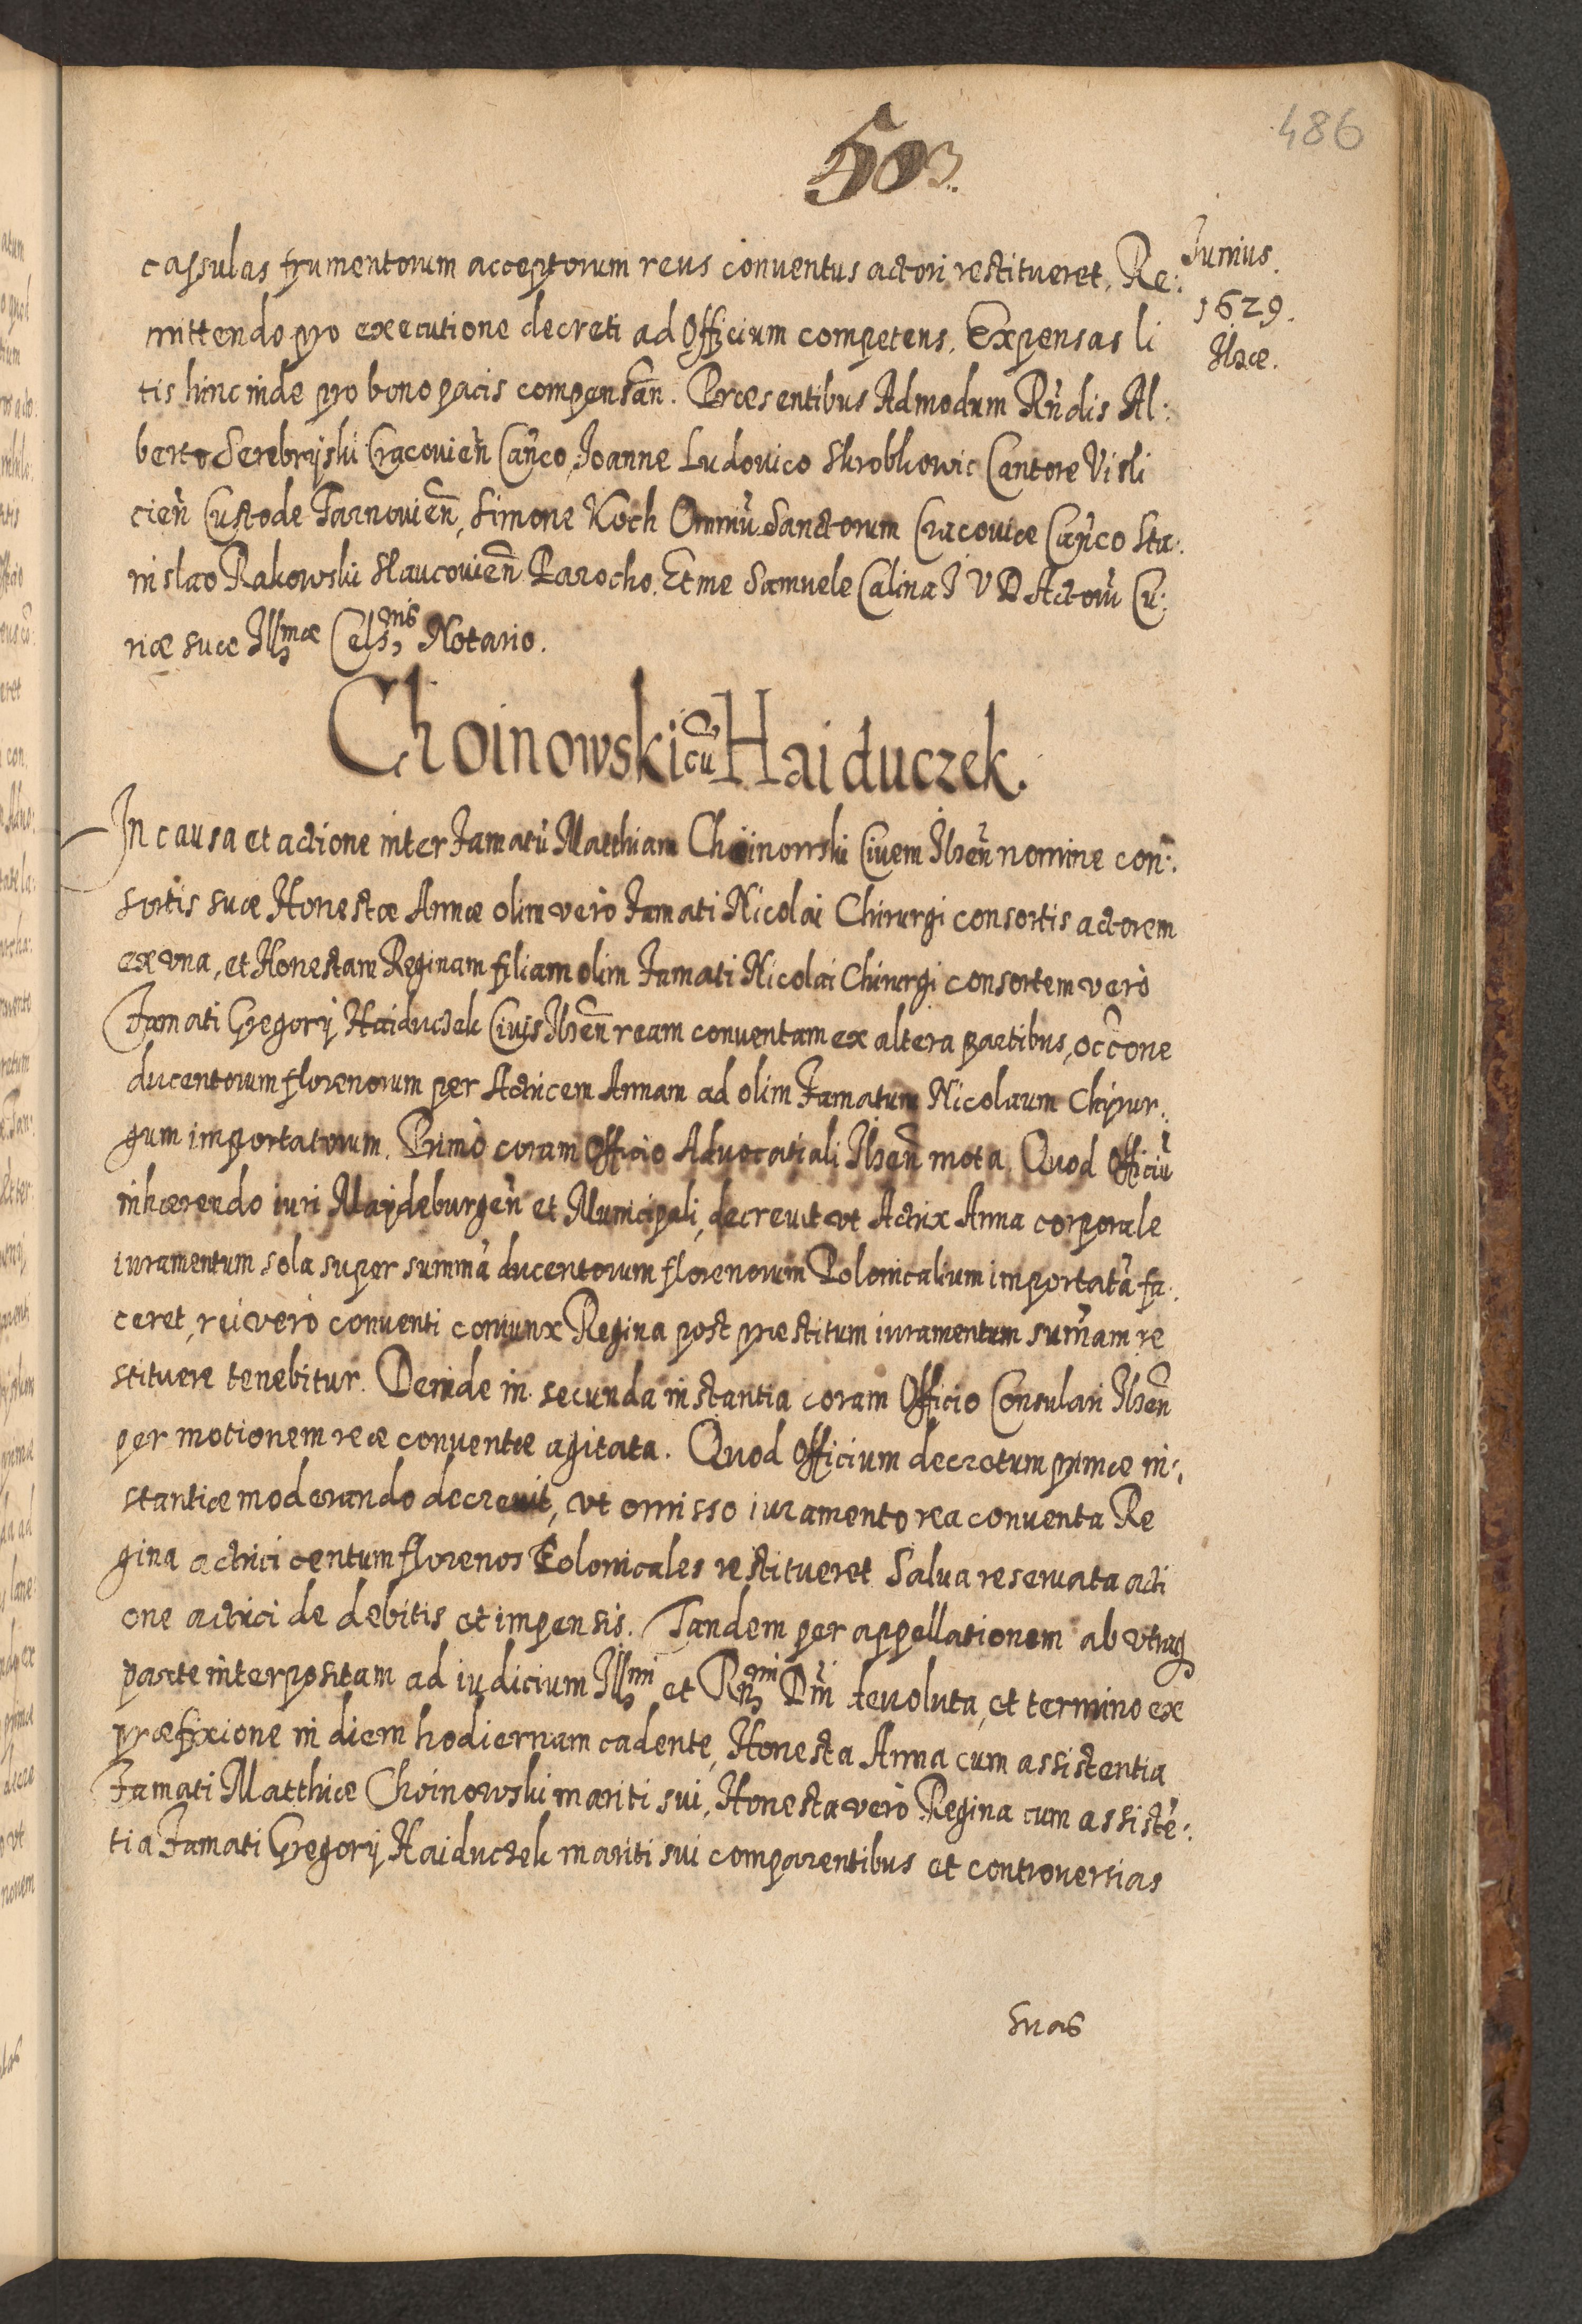 503.
486
Junius.
1629.
Ilzæ.
cassulas frumentorum acceptorum reus conuentus actori restitueret. Re:
mittendo pro executione decreti ad Officium competens. Expensas li
tis hinc inde pro bono pacis compensan̄. Præsentibus Admodum Rn̄dis Al:
berto Serebryski Cracouien̄ Can̄co, Joanne Ludouico Skrobkowic Cantore Visli
cien̄ Custode Tarnouien̄, Simone Koch Omniū Sanctorum Cracouiæ Can̄co Sta:
nislao Rakowski Slaucouien̄ Parocho. Et me Samuele Calina J V D Actorū Cu:
riæ suæ Illmæ Celsnis Notario.
Choinowski cū Haiduczek.
In causa et actione inter Famatū Matthiam Choinowski Ciuem Ilzen̄ nomine con:
sortis suæ Honestæ Annæ olim verò Famati Nicolai Chirurgi consortis actorem
ex vna, et Honestam Reginam filiam olim Famati Nicolai Chirurgi consortem verò
Famati Gregorij Haiduczek Ciuis Ilzen̄ ream conuentam ex altera partibus, occ̄one
ducentorum florenorum per Actricem Annam ad olim Famatum Nicolaum Chyrur:
gum importatorum. Primò coram Officio Aduocatiali Ilzen̄ mota. Quod Officiū
inhærendo iuri Maydeburgen̄ et Municipali, decreuit vt Actrix Anna corporale
iuramentum sola super summā ducentorum florenorum Polonicalium importatā fa:
ceret, rei verò conuenti coniunx Regina post præstitum iuramentum sum̄am re
stituere tenebitur. Deinde in secunda instantia coram Officio Consulari Ilzen̄
per motionem reæ conuentæ agitata. Quod Officium decretum primæ in:
stantiæ moderando decreuit, vt omisso iuramento rea conuenta Re
gina actrici centum florenos Polonicales restitueret Salua reseruata acti
one actrici de debitis et impensis. Tandem per appellationem ab vtraq
parte interpositam ad iudicium Illmi et Rn̄mi Dn̄i deuoluta, et termino ex
præfixione in diem hodiernam cadente, Honesta Anna cum assistentia
Famati Matthiæ Choinowski mariti sui, Honesta verò Regina cum assistē:
tia Famati Gregorij Haiduczek mariti sui comparentibus et controuersias
suas